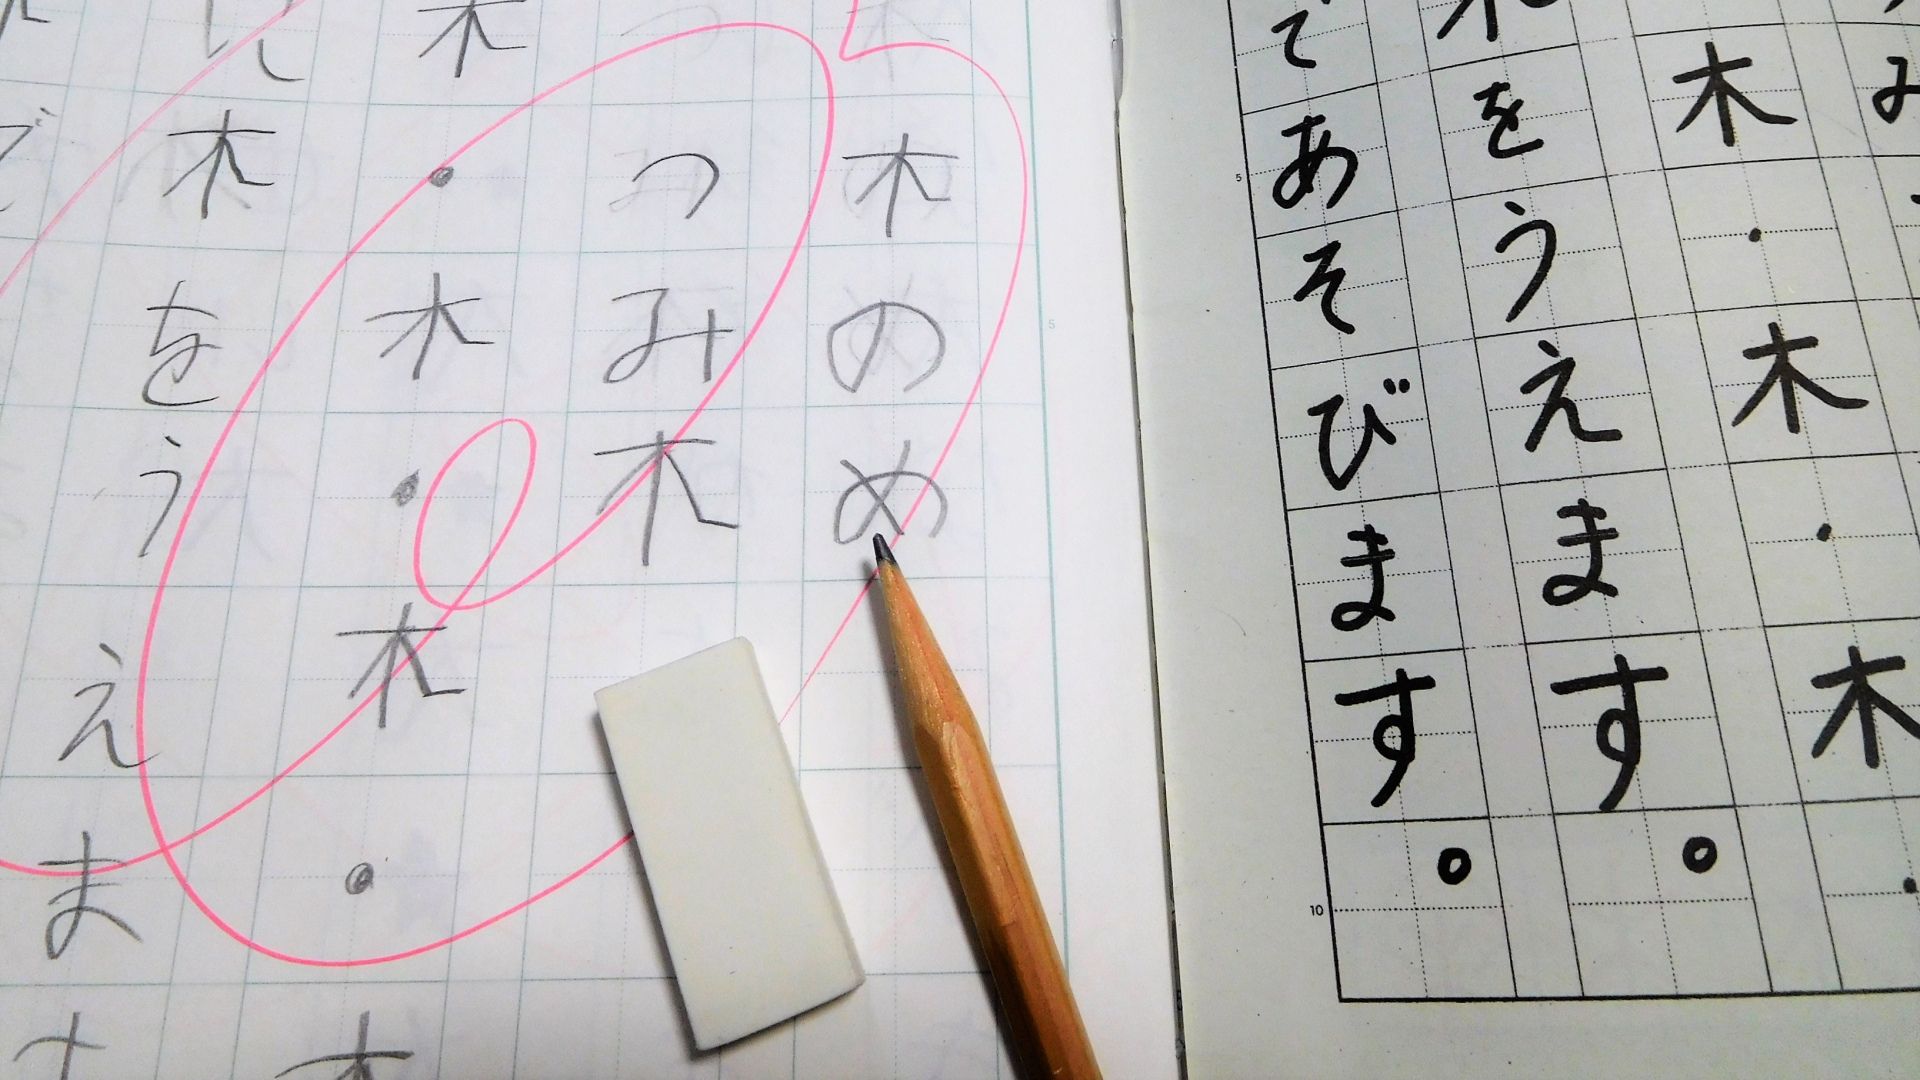 木のめ
つみ木
木・木・木・木
に木をうえます
で
み
木・木・木・
木をうえます。
であそびます。
5
5
10